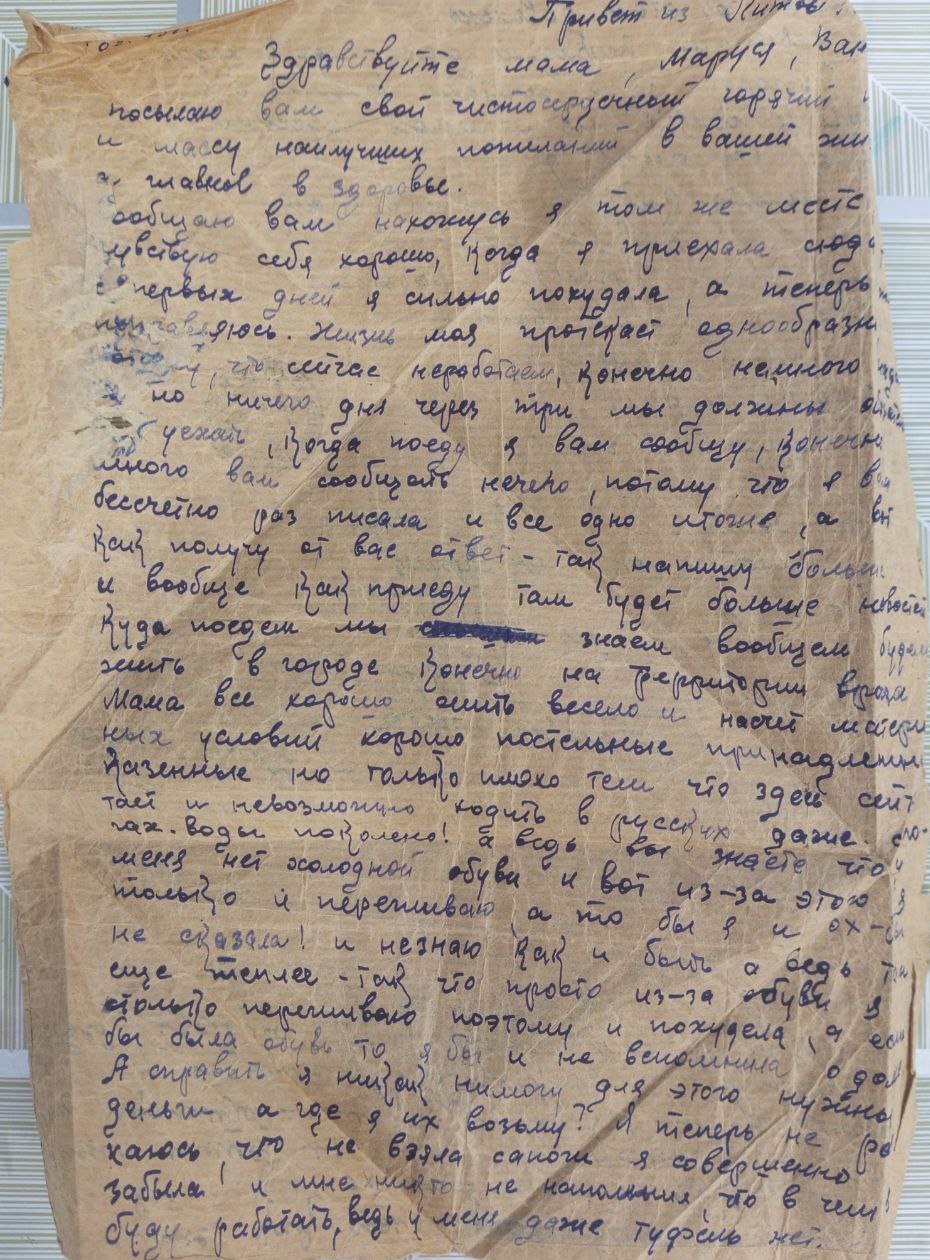 Привет из Литвы!
Здравствуйте мама, Маруся, Ван
посылаю вам свой чистосердечный горячий
и массу наилучших пожиланий в вашей жи
а главное в здоровье.
Сообщаю вам нахожусь я том же месте
чувствую себя хорошо, когда я приехала сюда
с первых дней я сильно похудала, а теперь
поправляюсь. Жизнь моя протекает однообразн
что сейчас неработаем, конечно немного
но ничего дня через три мы должны
уехать, когда поеду я вам сообщу, конечн
много вам сообщать нечего, потому что я вам
бессчетно раз писала и все одно итоже, а вот
как получу от вас ответ - так напишу больш
и вообще как приеду там будет больше новостей
куда поедем мы знаем вообщем будем
жить в городе конечно на территории врага
Мама все хорошо жить весело и насчет матери
ных условий хорошо постельные принадлежн
казенные но только плохо тем что здесь сейч
тает и невозможно ходить в русских даже. сапо-
гах. воды поколено! а ведь вы знаете что у
меня нет холодной обуви и вот из-за этого я
только и переживаю, а то бы я и ох-бы
не сказала! и незнаю как и быть а ведь там
еще теплее - так что просто из-за обуви я
столько переживаю поэтому и похудела, а если
бы была обувь то я бы и не вспомнила о дом
А справить я никак нимогу для этого нужны
деньги а где я их возьму? А теперь не
каюсь, что не взяла сапоги я совершенно
забыла! и мне никто не напомнил, что в чем
буду работать, ведь у меня даже туфель нет.